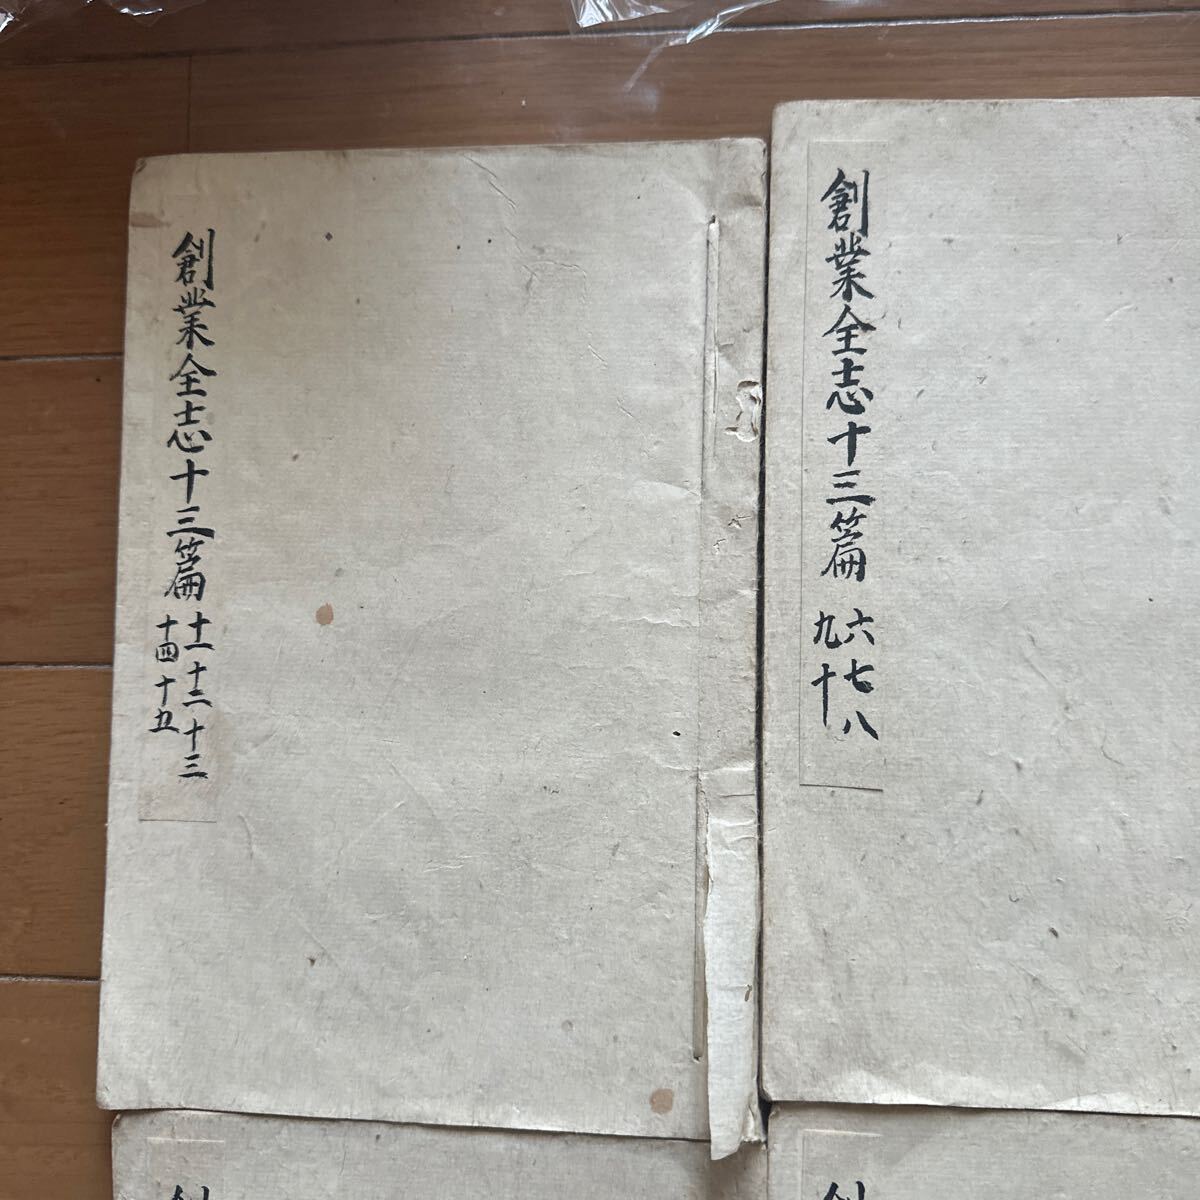 創業全志十三篇 六七八
九十
創業全志十三篇 十一十二十三
十四十五
創
創